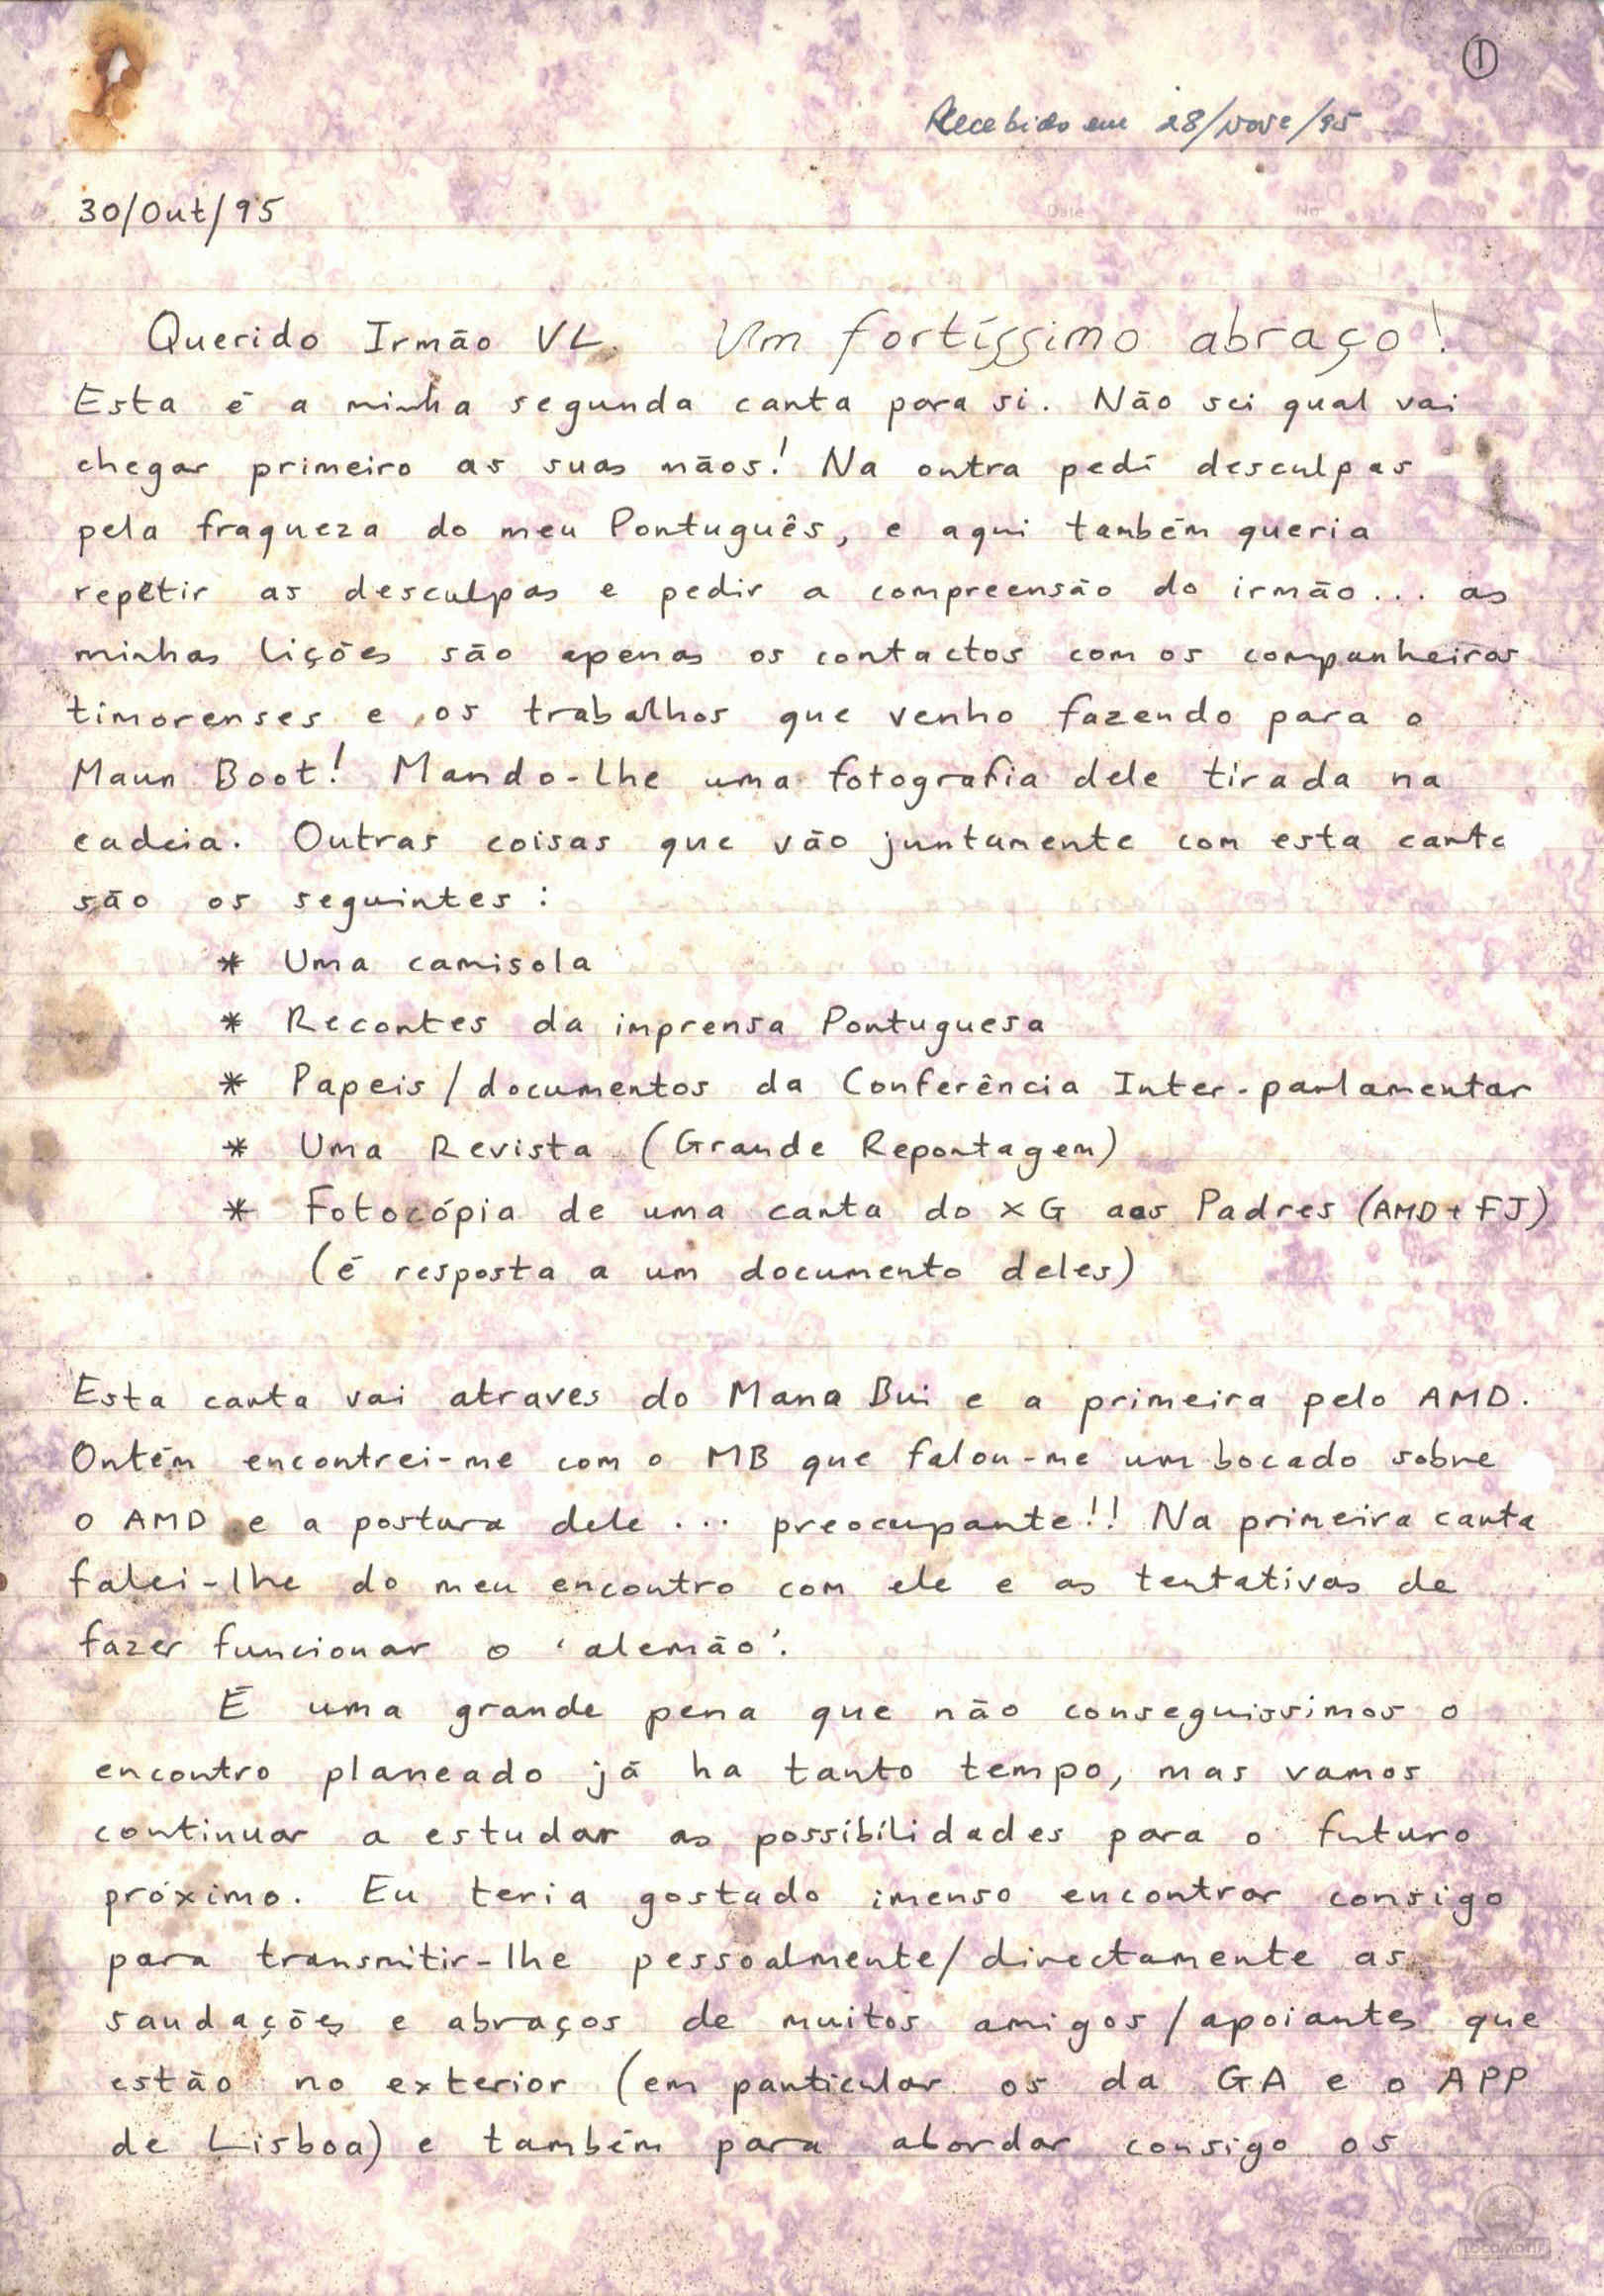 ①
Recebido em 28/Nove/95
Date No
30/Out/95
Querido Irmão VL. Um fortíssimo abraço!
Esta é a minha segunda carta para si. Não sei qual vai
chegar primeiro as suas mãos! Na outra pedi desculpas
pela fraqueza do meu Português, e aqui também queria
repetir as desculpas e pedir a compreensão do irmão... as
minhas lições são apenas os contactos com os companheiros
timorenses e os trabalhos que venho fazendo para o
Maun Boot! Mando-lhe uma fotografia dele tirada na
cadeia. Outras coisas que vão juntamente com esta carta
são os seguintes:
* Uma camisola
* Recortes da imprensa Portuguesa
* Papeis/documentos da Conferência Inter-parlamentar
* Uma Revista (Grande Reportagem)
* Fotocópia de uma carta do XG aos Padres (AMD + FJ)
(é resposta a um documento deles)
Esta carta vai atraves do Mana Bui e a primeira pelo AMD.
Ontém encontrei-me com o MB que falou-me um bocado sobre
o AMD e a postura dele... preocupante!! Na primeira carta
falei-lhe do meu encontro com ele e as tentativas de
fazer funcionar o 'alemão'.
É uma grande pena que não conseguissimos o
encontro planeado já ha tanto tempo, mas vamos
continuar a estudar as possibilidades para o futuro
próximo. Eu teria gostado imenso encontrar consigo
para transmitir-lhe pessoalmente/directamente as
saudações e abraços de muitos amigos/apoiantes que
estão no exterior (em particular os da GA e o APP
de Lisboa) e também para abordar consigo os